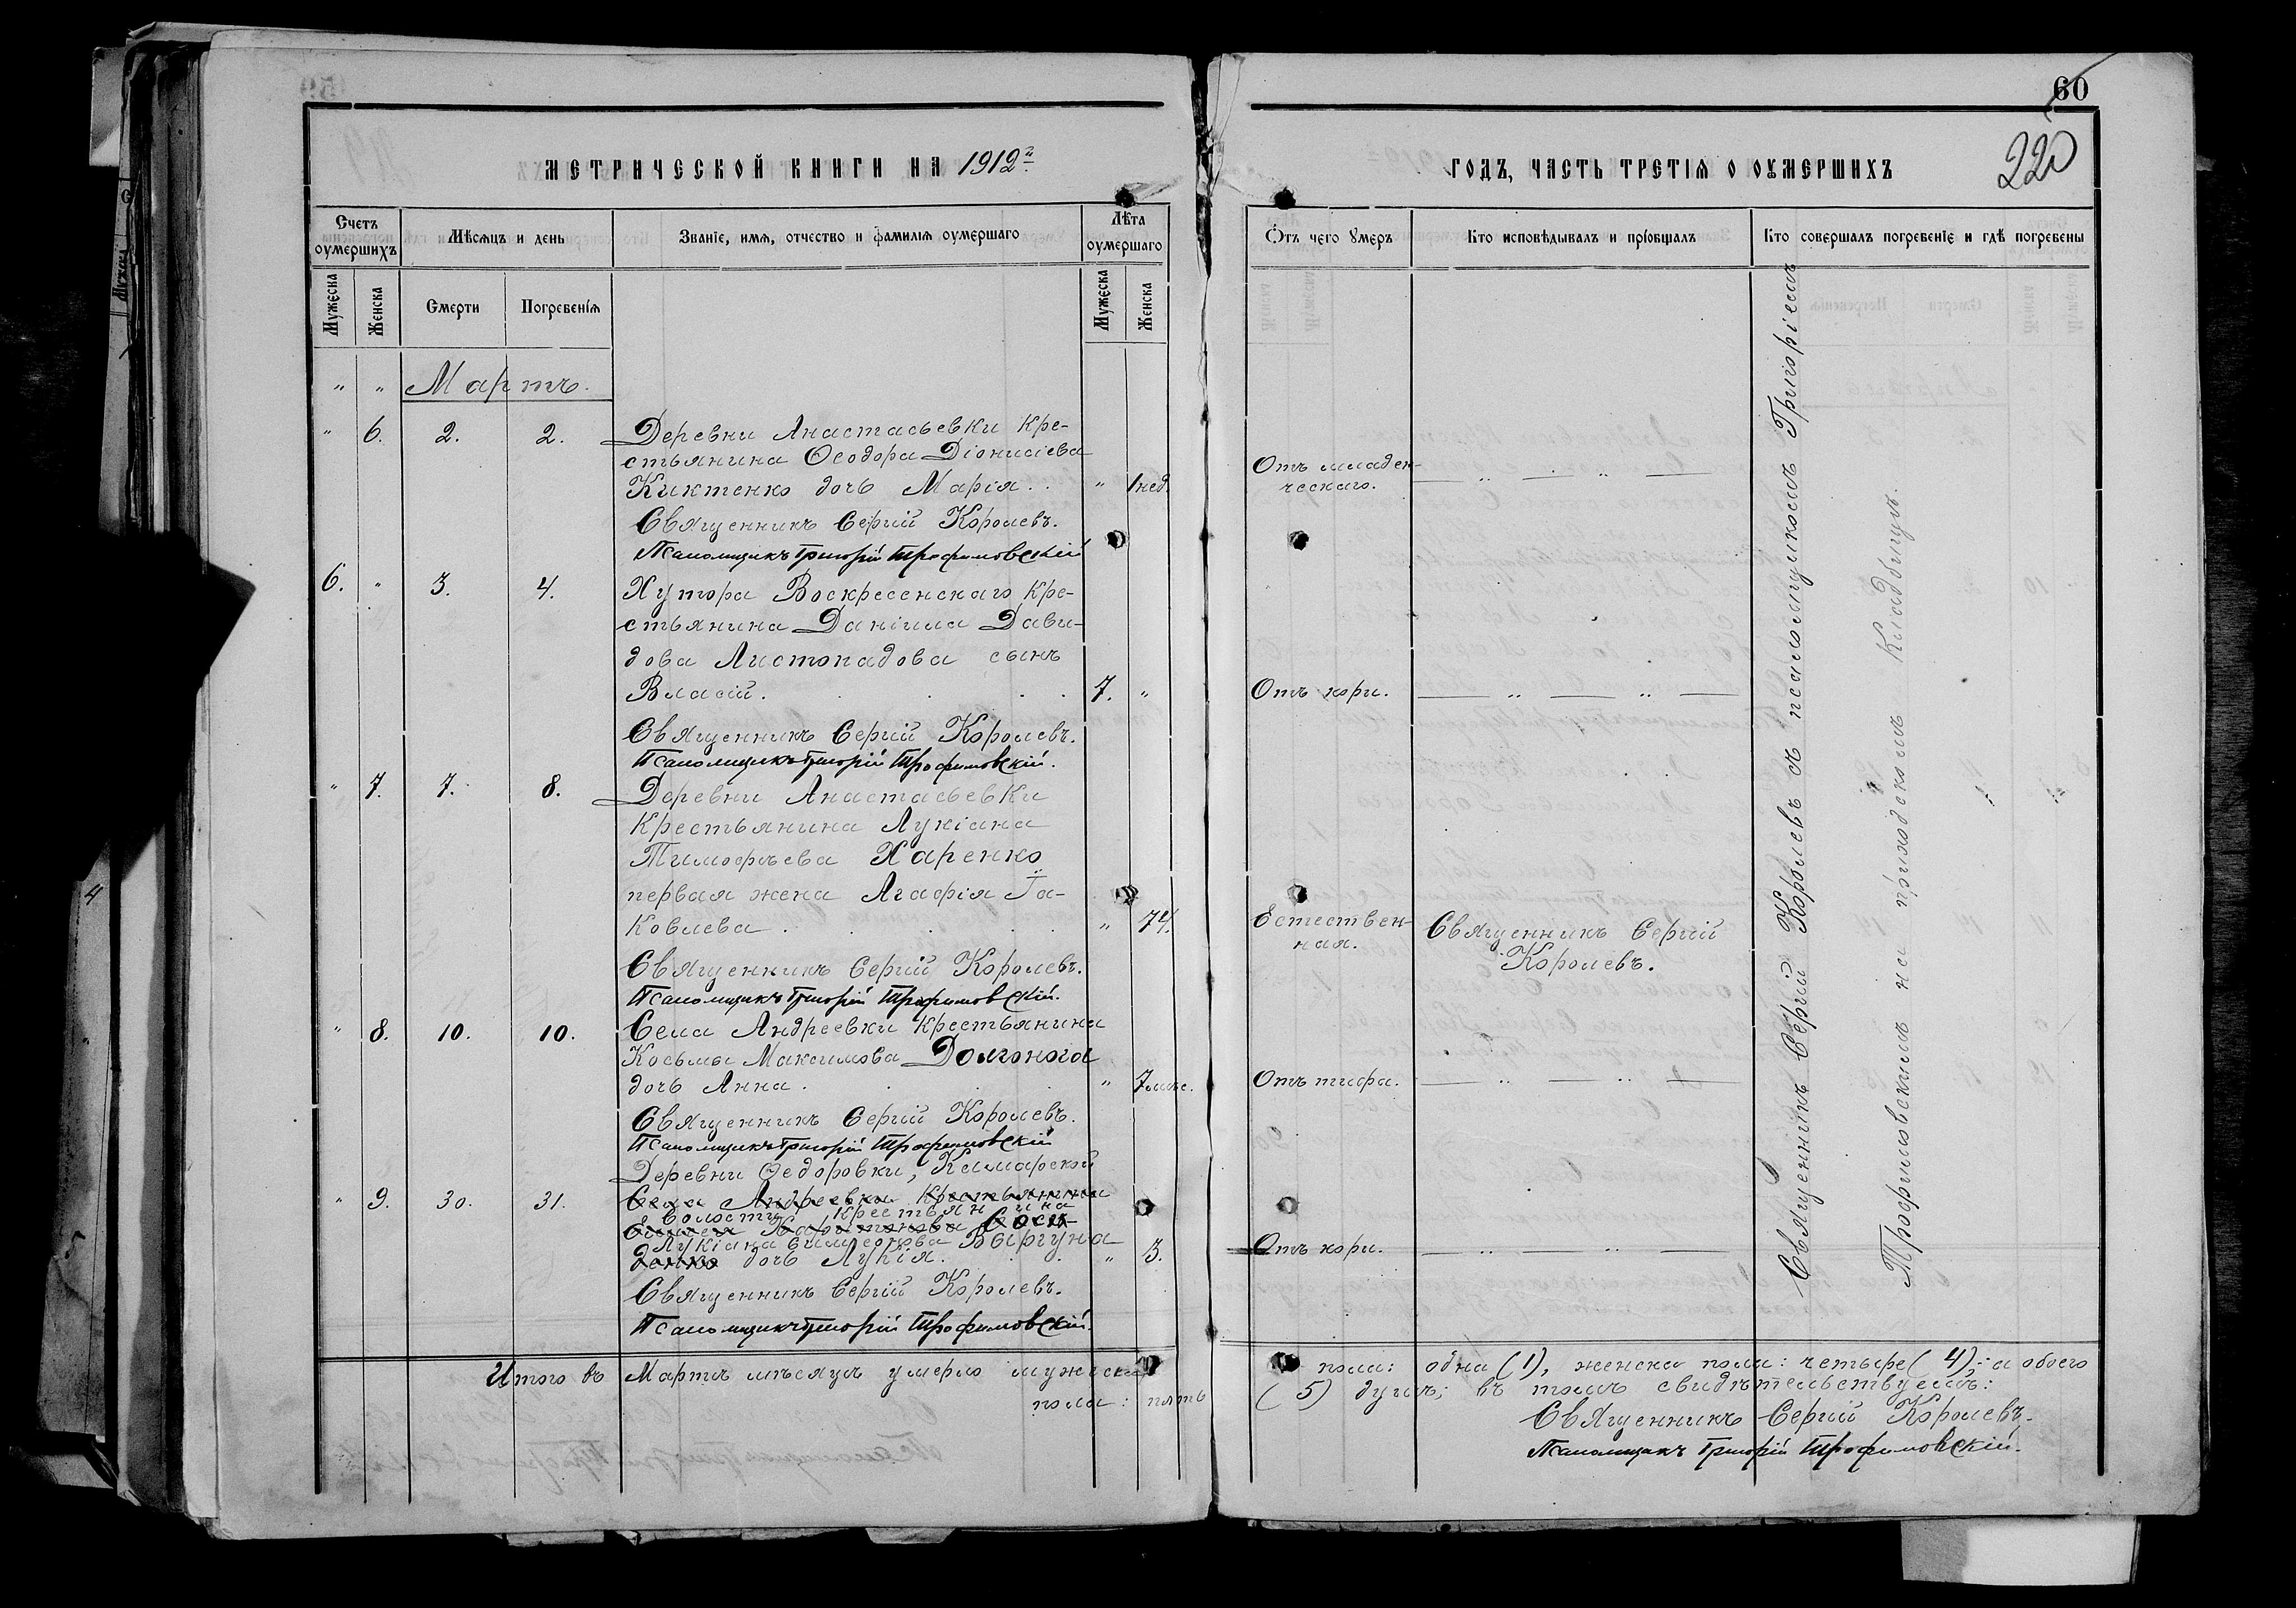 60
220
МЕТРИЧЕСКОЙ КНИГИ НА 1912й
ГОДЪ, ЧАСТЬ ТРЕТІЯ О ОУМЕРШИХЪ
Счетъ оумершихъ
Мѣсяцъ и день
Званіе, имя, отчество и фамилія оумершаго
Лѣта оумершаго
Отъ чего умеръ
Кто исповѣдывалъ и пріобщалъ
Кто совершалъ погребеніе и гдѣ погребены
Мужеска
Женска
Смерти
Погребенія
Мужеска
Женска
" " Мартъ.
" 6. 2. 2. Деревни Анастасьевки кре-
стьянина Ѳеодора Діонисіева
Киктенко дочь Марія. . " 1 нед.
Отъ младен-
ческаго. — " — " —
Священникъ Сергій Королевъ.
Псаломщикъ Григорій Трофимовскій
6. " 3. 4. Хутора Воскресенскаго кре-
стьянина Даніила Дави-
дова Листопадова сынъ
Власій. . . . 7. " Отъ кори. — " — " —
Священникъ Сергій Королевъ.
Псаломщикъ Григорій Трофимовскій.
" 7. 7. 8. Деревни Анастасьевки
крестьянина Лукіана
Тимофѣева Харенко
первая жена Агафія Іа-
ковлева . . . . " 74. Естествен-
ная. Священникъ Сергій
Королевъ.
Священникъ Сергій Королевъ.
Псаломщикъ Григорій Трофимовскій.
" 8. 10. 10. Села Андреевки крестьянина
Косьмы Максимова Долгонога
дочь Анна . . . " 7 мѣс. Отъ тифа. — " — " —
Священникъ Сергій Королевъ.
Псаломщикъ Григорій Трофимовскій
Деревни Ѳедоровки, Камарской
" 9. 30. 31. Села Андреевки крестьянина
волости, крестьянина
Харитонова
Лукіана Симеонова Вергуна
денко дочь Лукія. . . " 3. Отъ кори. — " " —
Священникъ Сергій Королевъ.
Псаломщикъ Григорій Трофимовскій.
Священникъ Сергій Королевъ съ псаломщикомъ Григоріемъ
Трофимовскимъ на приходскомъ кладбищѣ.
Итого въ Мартѣ мѣсяцѣ умерло мужеска
пола: одна (1), женска пола: четыре (4), а обоего
пола: пять
(5) душъ; въ томъ свидѣтельствуемъ:
Священникъ Сергій Королевъ.
Псаломщикъ Григорій Трофимовскій.